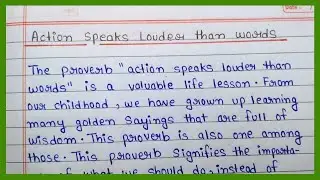 Action Speaks Louder than words
The proverb "action speaks louder than
words" is a valuable life lesson. From
our childhood, we have grown up learning
many golden sayings that are full of
wisdom. This proverb is also one among
those. This proverb signifies the importa-
of what we should do, instead of